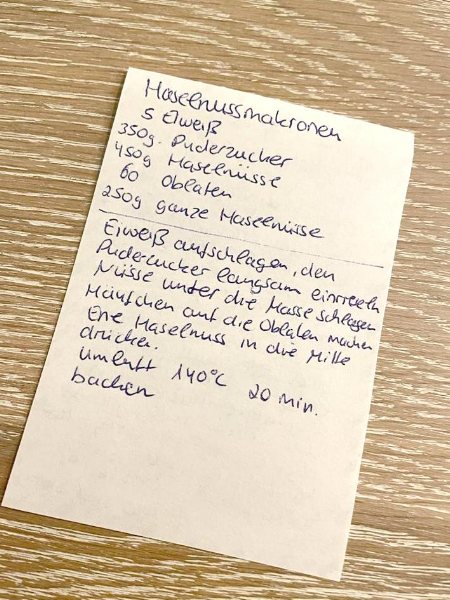 Haselnussmakronen
5 Eiweiß
350g. Puderzucker
450g Haselnüsse
60 Oblaten
250g ganze Haselnüsse
Eiweiß aufschlagen, den
Puderzucker langsam einrieseln
Nüsse unter die Masse schlagen
Häufchen auf die Oblaten machen
Eine Haselnuss in die Mitte
drücken.
Umluft 140°C 20 Min.
backen